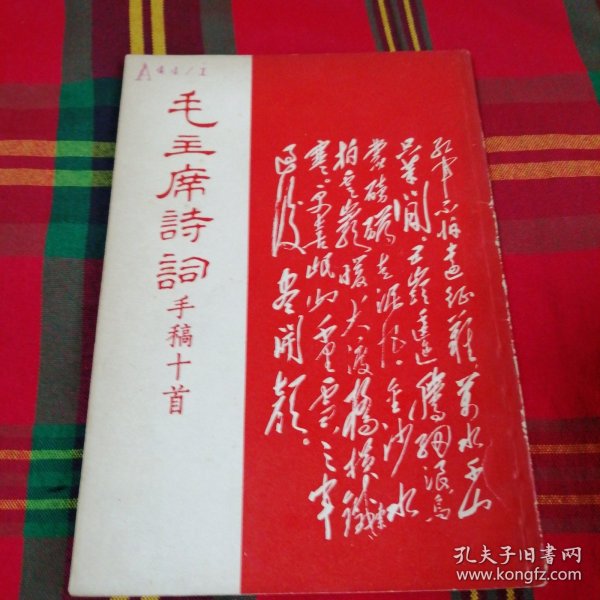 A44/1
毛主席詩詞
手稿十首
紅軍不怕遠征難，萬水千山
只等閒。五嶺逶迤騰細浪，烏
蒙磅礴走泥丸。金沙水
拍雲巖暖，大渡橋橫鐵索
寒。更喜岷山千里雪，三軍
過後盡開顏。
孔夫子旧书网
www.kongfz.com